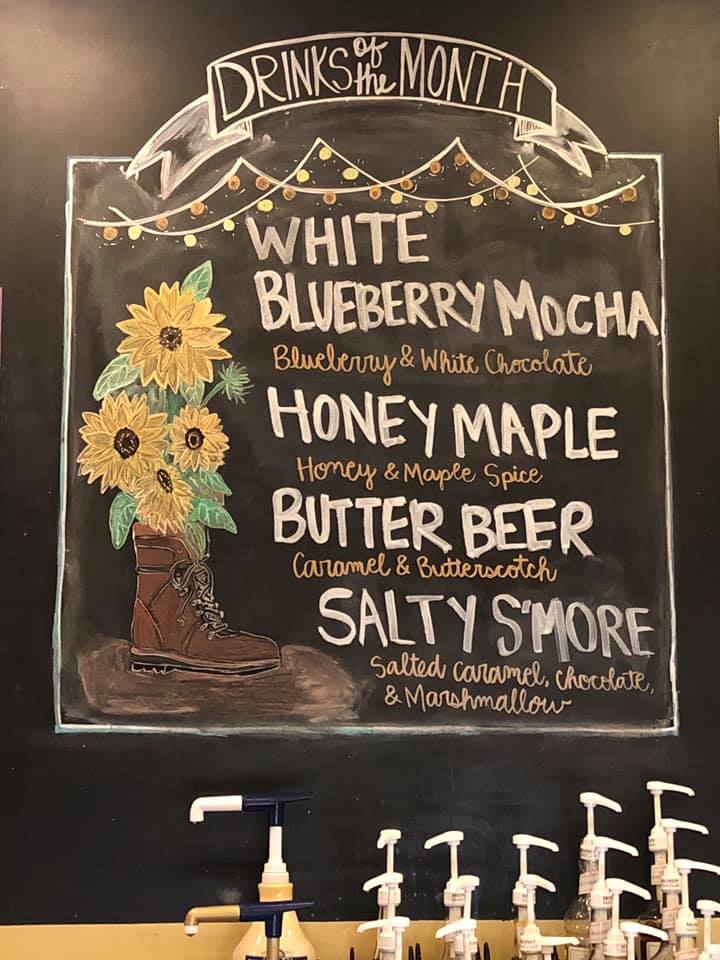 DRINKS of the MONTH
WHITE
BLUEBERRY MOCHA
Blueberry & White Chocolate
HONEY MAPLE
Honey & Maple Spice
BUTTER BEER
Caramel & Butterscotch
SALTY S'MORE
Salted Caramel, Chocolate,
& Marshmallow